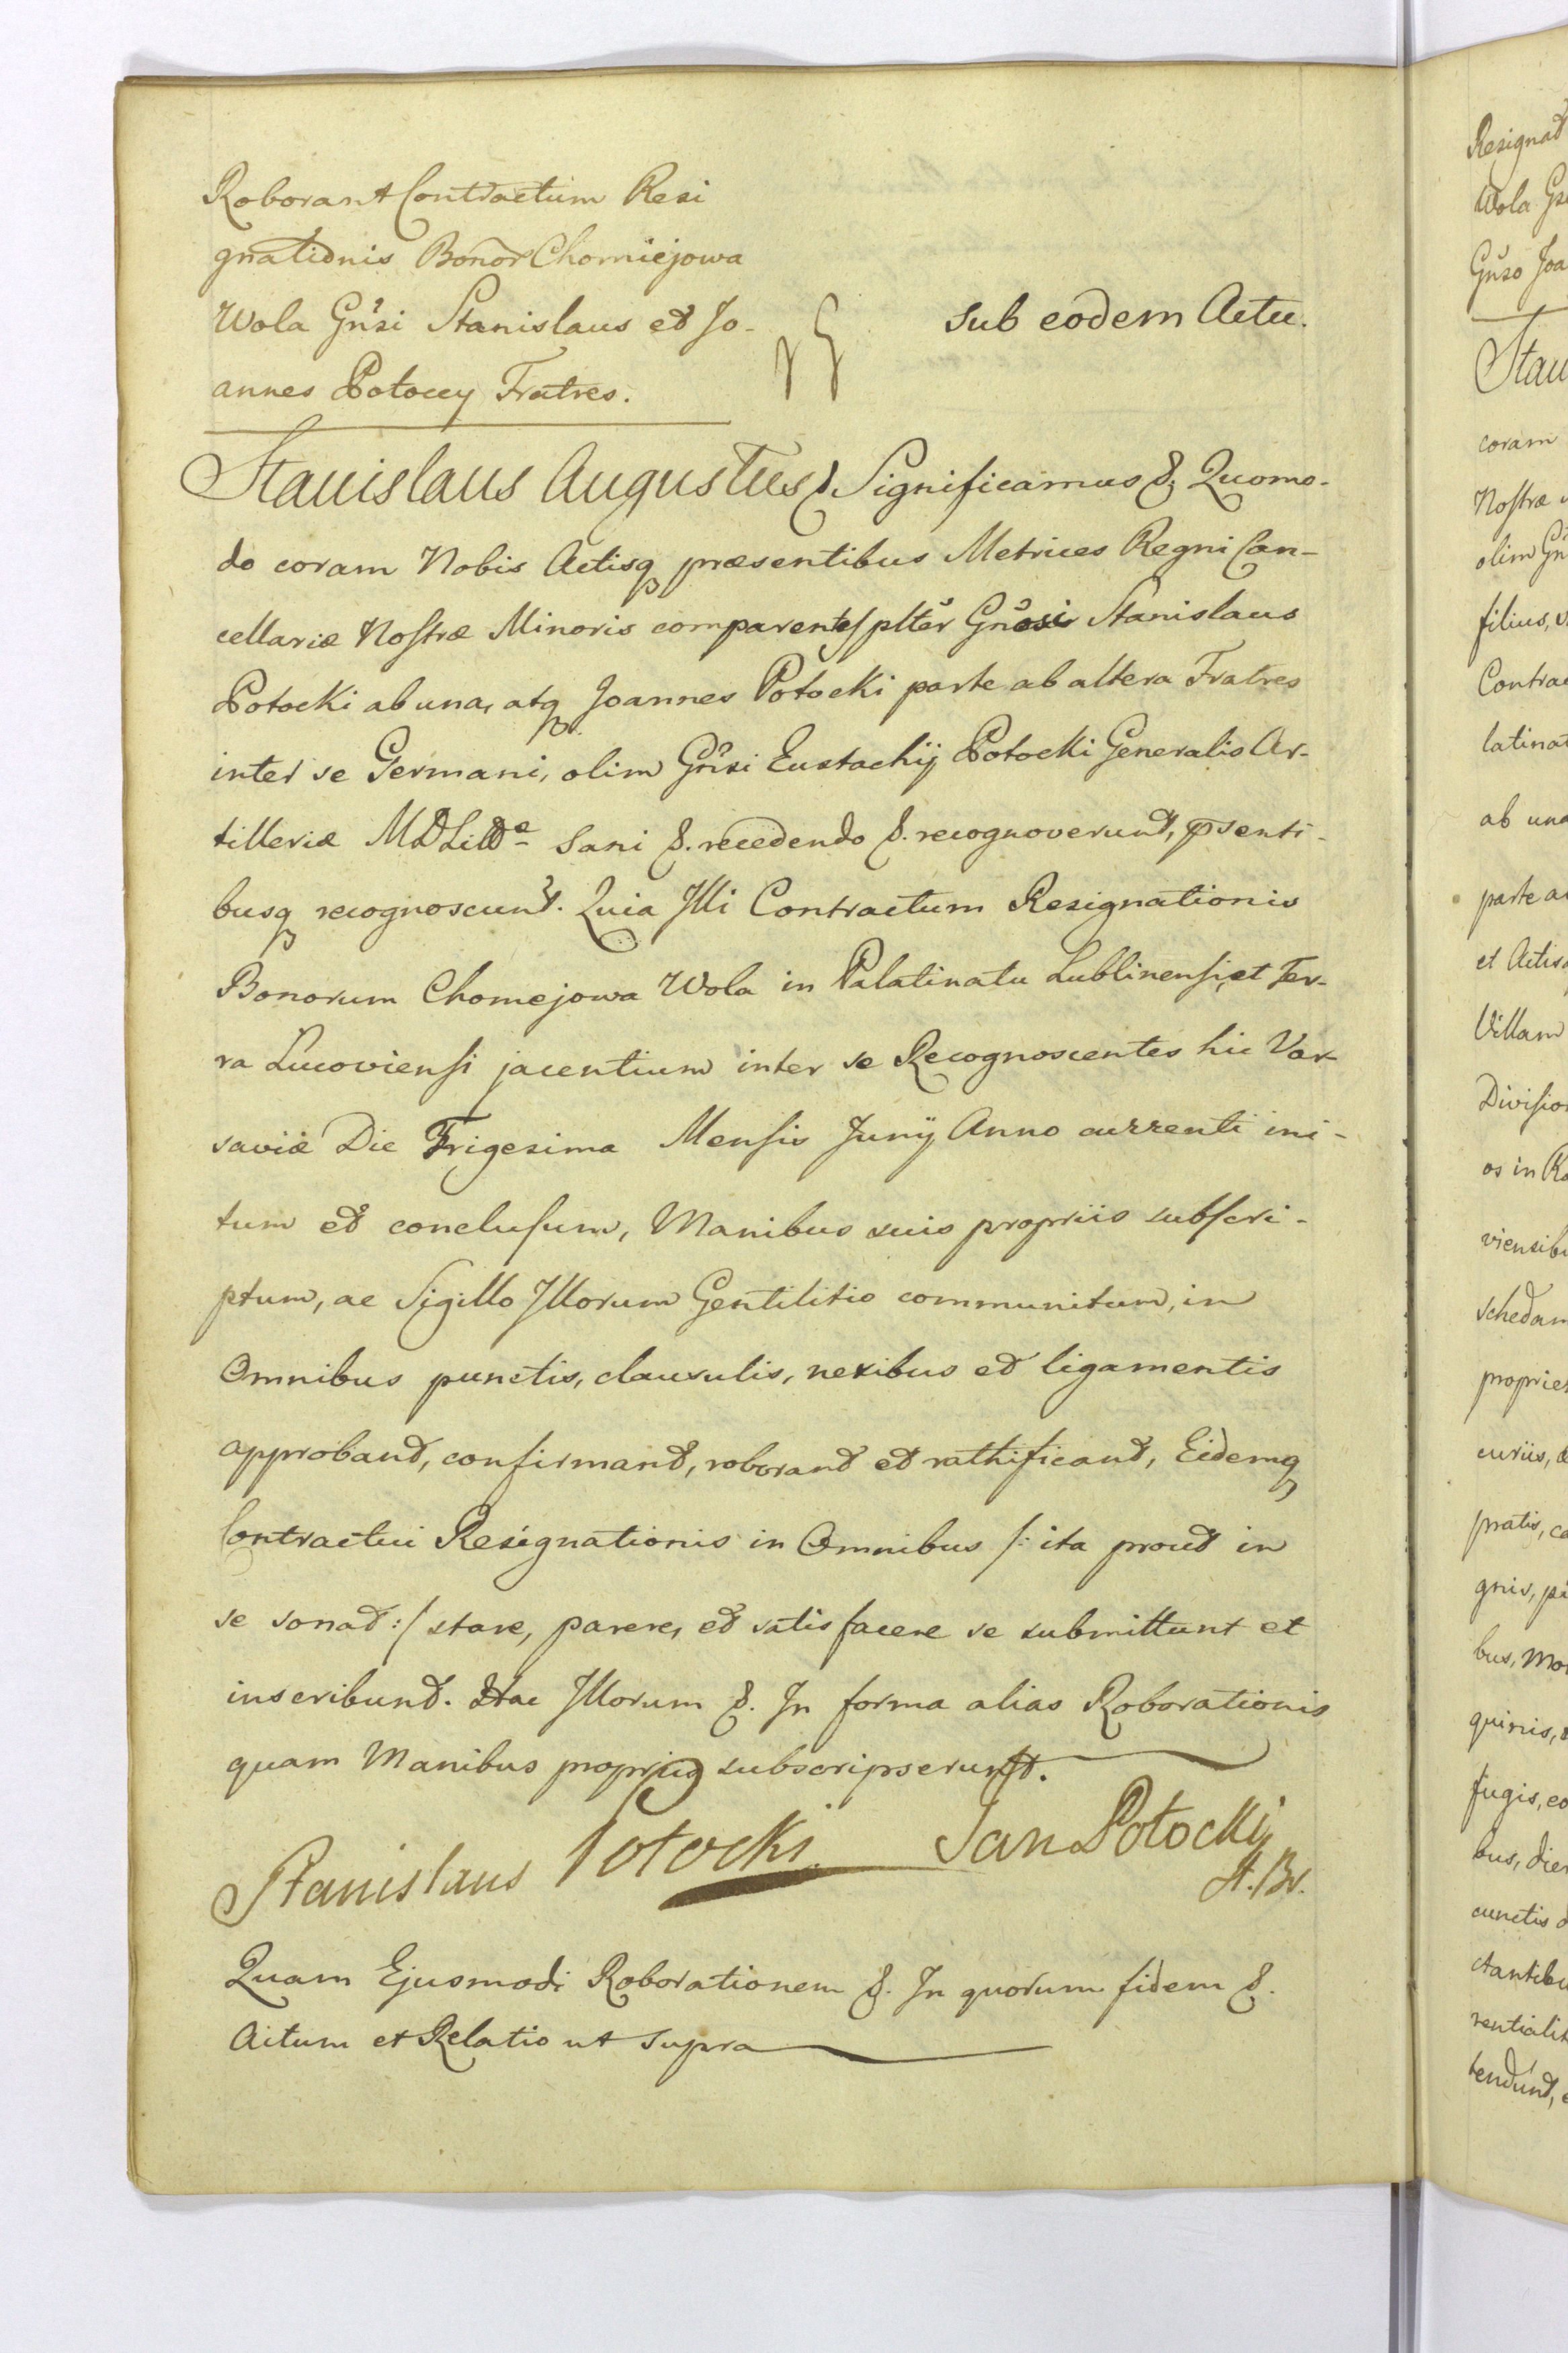 Roborant Contractum Resi
gnationis Bonor Chomiejowa
Wola Gnsi Stanislaus et Jo-
annes Potoccy Fratres.
Sub eodem Actu.
Stanislaus Augustus & Significamus &. Quomo-
do coram Nobis Actisq præsentibus Metrices Regni Can-
cellariæ Nostræ Minoris comparentes plter Gnosi Stanislaus
Potocki ab una, atq Joannes Potocki parte ab altera Fratres
inter se Germani, olim Gnsi Eustachij Potocki Generalis Ar-
tilleriæ MD Litt Sani &. recedendo &. recognoverunt, psenti-
busq recognoscunt. Quia Illi Contractum Resignationis
Bonorum Chomejowa Wola in Palatinatu Lublinensi, et Ter-
ra Lucoviensi jacentium inter se Recognoscentes hic Var-
saviæ Die Trigesima Mensis Junij Anno currenti ini-
tum et conclusum, Manibus suis propriis subscri-
ptum, ac Sigillo Illorum Gentilitio communitum, in
Omnibus punctis, clausulis, nexibus et ligamentis
approbant, confirmant, roborant et rathificant, Eidemq
Contractui Resignationis in Omnibus /: ita prout in
se sonat :/ stare, parere, et satisfacere se submittunt et
inscribunt. Hac Illorum &. In forma alias Roborationis
quam Manibus propriis subscripserunt.
Stanislaus Potocki. Jan Potocki
Quam Ejusmodi Roborationem &. In quorum fidem &.
Actum et Relatio ut supra
Resignat
Wola
Gnso Joa
Stan
coram
Nostræ
olim Gn
filius,
Contrac
latinat
ab una
parte a
et Actis
Villam
Division
os in
viensib
schedam
propriet
curiis,
pratis,
gnis,
bus,
quinis,
fugis,
bus,
cunctis
ctantib
rentialit
tendunt,